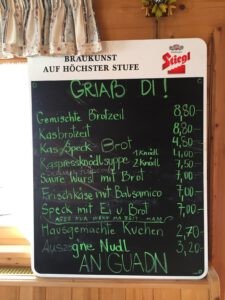 BRAUKUNST
AUF HÖCHSTER STUFE
Stiegl
GRIAß DI!
Gemischte Brotzeil 8,80-
Kasbrotzeil 8,80
Kas/Speck-Brot 4,50
Kaspressknödlsuppe 1 Knödl 4,00
2 Knödl 7,50
Saure Wurst mit Brot 7,00
Frischkäse mit Balsamico 7,00
Speck mit Ei u Brot 7,00-
Hausgemachte Kuchen 2,70
Auszogne Nudl 3,20
AN GUADN